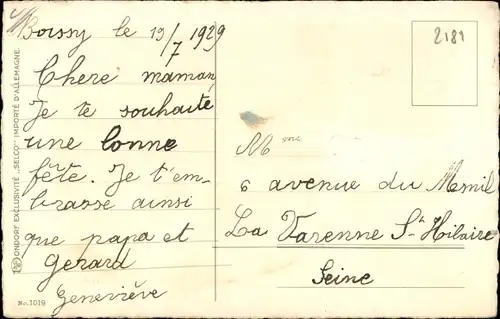 Boissy le 19/7 1929
Chere maman,
Je te souhaite
une bonne
fête. Je t'em-
brasse ainsi
que papa et
Gérard
Geneviève
2181
Mme
6 avenue du Mesnil
La Varenne St-Hilaire
Seine
ONDORF EXCLUSIVITÉ „SELCO" IMPORTÉ D'ALLEMAGNE
No. 1019